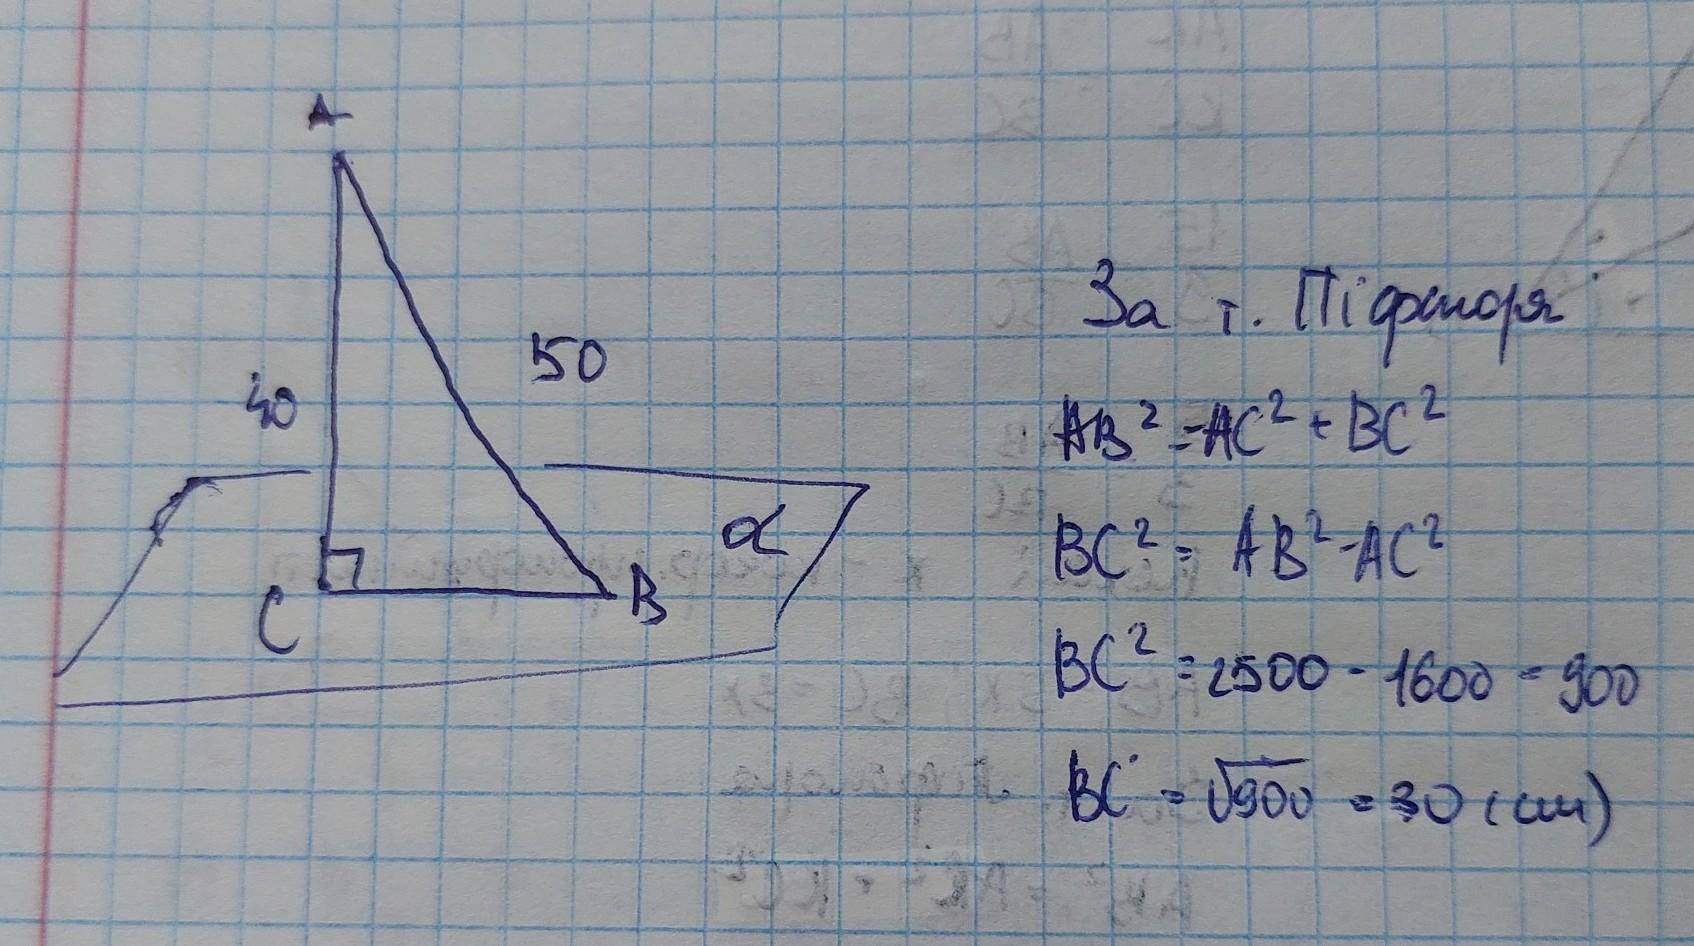 A
50
40
α
C
B
За т. Піфагоря
AB² = AC² + BC²
BC² = AB² - AC²
BC² = 2500 - 1600 = 900
BC = √900 = 30 (см)